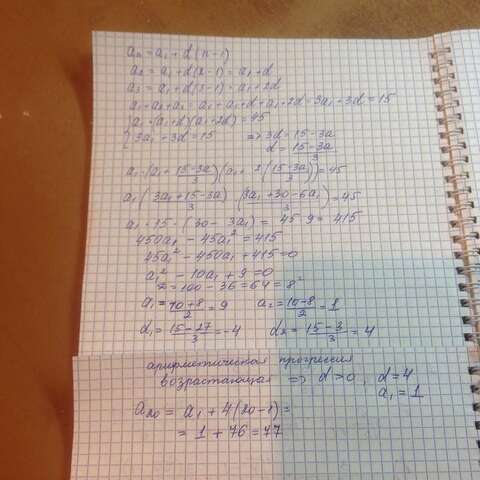 aₙ = a₁ + d(n-1)
a₂ = a₁ + d(2-1) = a₁ + d
a₃ = a₁ + d(3-1) = a₁ + 2d
a₁ + a₂ + a₃ = a₁ + a₁ + d + a₁ + 2d = 3a₁ + 3d = 15
{ a₁ (a₁+d)(a₁+2d) = 45
{ 3a₁ + 3d = 15 => 3d = 15 - 3a
d = (15-3a)/3
a₁ · (a₁ + (15-3a)/3)(a₁ + 2((15-3a)/3)) = 45
a₁ ((3a₁+15-3a)/3) · ((3a₁+30-6a₁)/3) = 45
a₁ · 15 · (30 - 3a₁) = 45 · 9 = 415
450a₁ - 45a₁² = 415
45a₁² - 450a₁ + 415 = 0
a₁² - 10a₁ + 9 = 0
= 100 - 36 = 64 = 8²
a₁ = (10+8)/2 = 9 a₂ = (10-8)/2 = 1
d₁ = (15-27)/3 = -4 d₂ = (15-3)/3 = 4
арифметическая прогрессия
возрастающая => d>0, d=4
a₁ = 1
a₂₀ = a₁ + 4(20-1) =
= 1 + 76 = 77